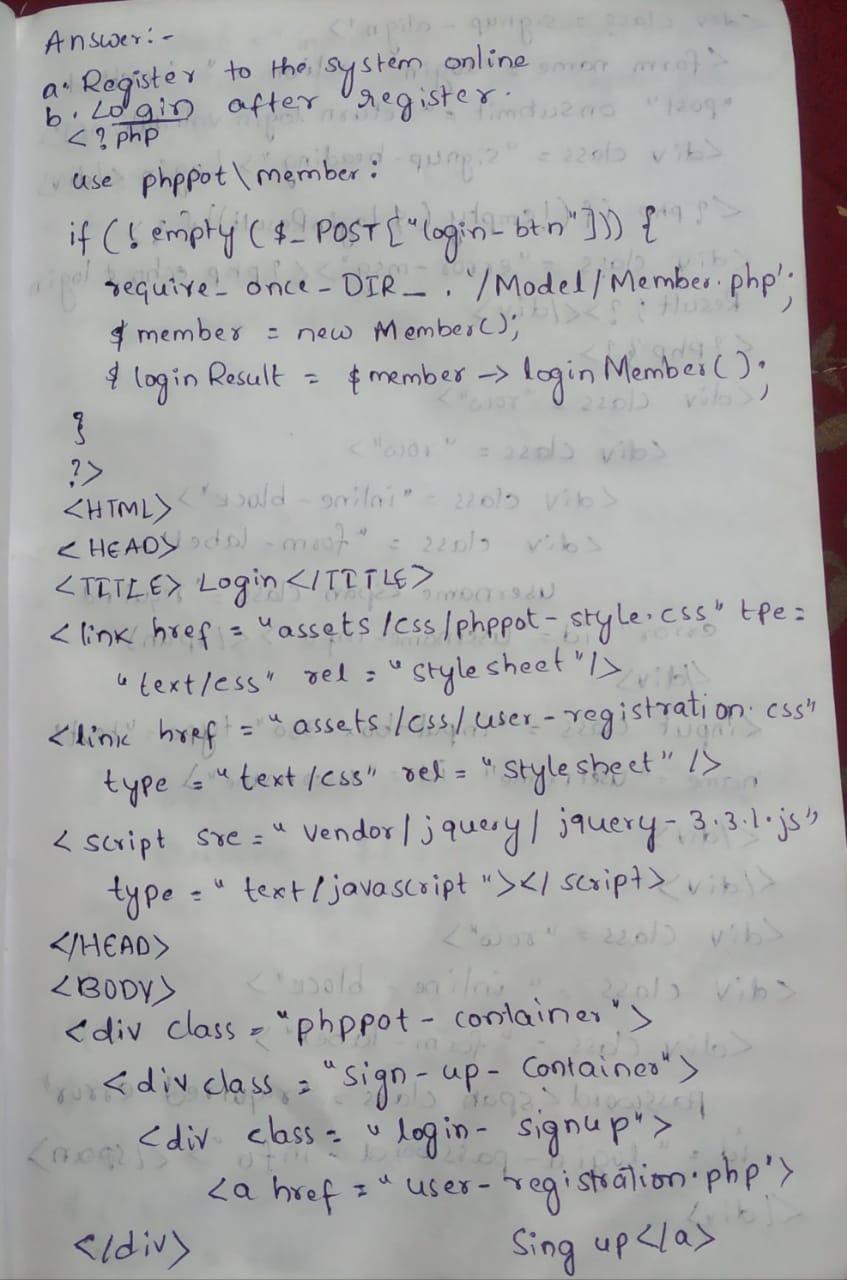 Answer:-
a. Register to the system online
b. Login after register.
<?php
use phppot\member:
if (! empty ($_POST["login-btn"])) {
require_once_DIR_ . "/Model/Member.php';
$member = new Member();
$loginResult = $member -> loginMember();
}
?>
<HTML>
<HEAD>
<TITLE> Login </TITLE>
<link href = "assets/css/phppot-style.css" tpe=
"text/css" rel = "stylesheet"/>
<link href = "assets/css/user-registration.css"
type = "text/css" rel = "stylesheet" />
<script src = "vendor/jquery/jquery-3.3.1.js"
type = "text/javascript"></script>
</HEAD>
<BODY>
<div class = "phppot-container">
<div class = "sign-up-container">
<div class = "login-signup">
<a href = "user-registration.php'>
Sing up</a>
</div>